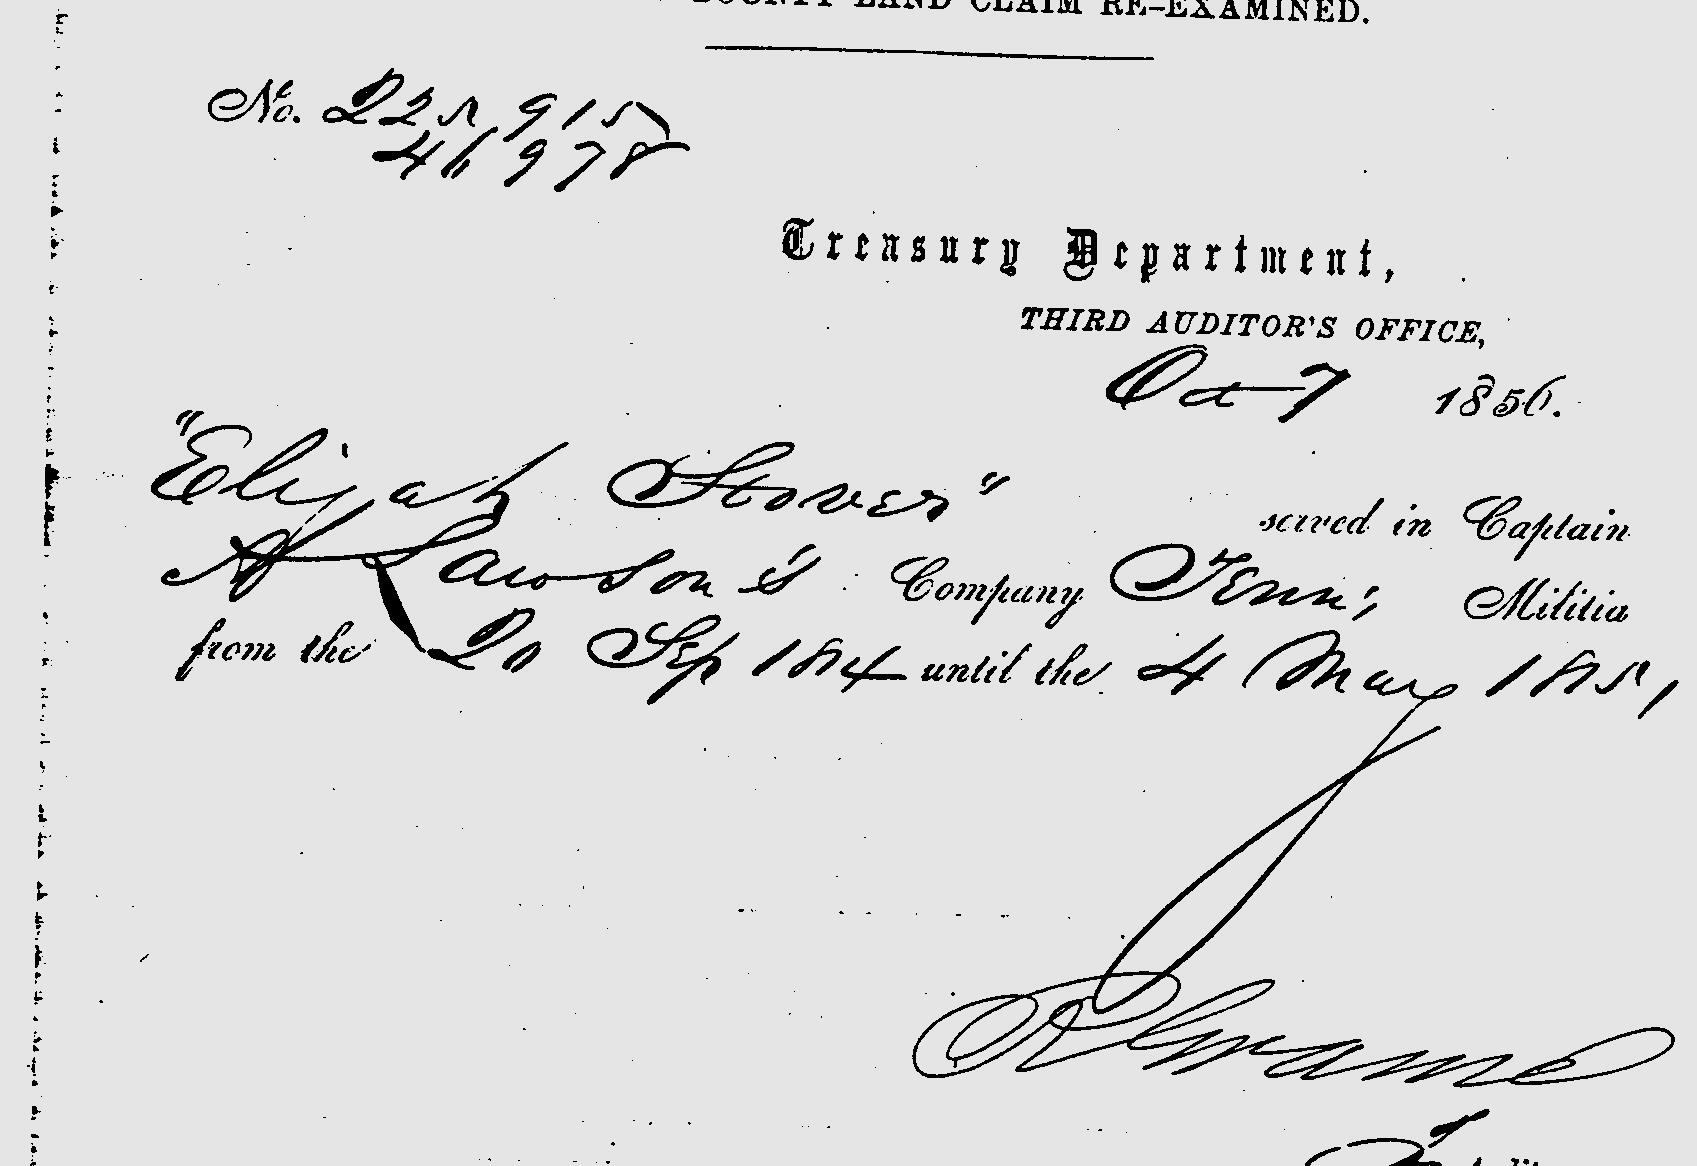 BOUNTY LAND CLAIM RE-EXAMINED.
No. 225 915
46 978
Treasury Department,
THIRD AUDITOR'S OFFICE,
Oct 7 1856.
"Elijah Stover"
served in Captain
A Lawson's Company Tenn; Militia
from the 20 Sep 1814 until the 4 May 1815,